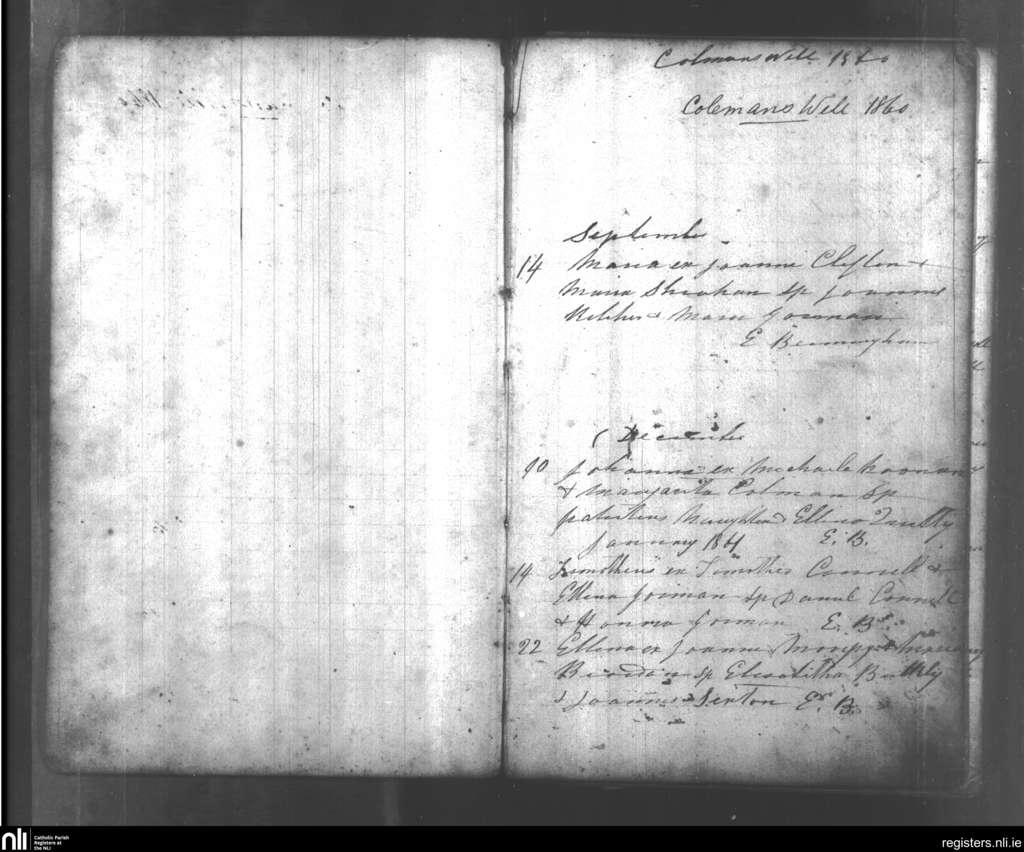 Colmans Well 1860
Colemans Well 1860
September
14 Maria ex Joanne Clifton &
Maria Sheahan sp Joannes
Kelcher & Maria Gorman
E Bermingham
December
90 Johanna ex Michaele Noonan
& Margarita Colman Sp
patritius & Ellino Quilty
January 1861 E. B.
14 Timotheus ex Timotheo Connell &
Ellena Gorman sp Daniel Connell
& Honora Gorman E. B.
22 Ellena ex Joanne &
sp Elizabitha Bulkly
& Joannes Sexton E. B.
nli
Catholic Parish
Registers at
the NLI
registers.nli.ie